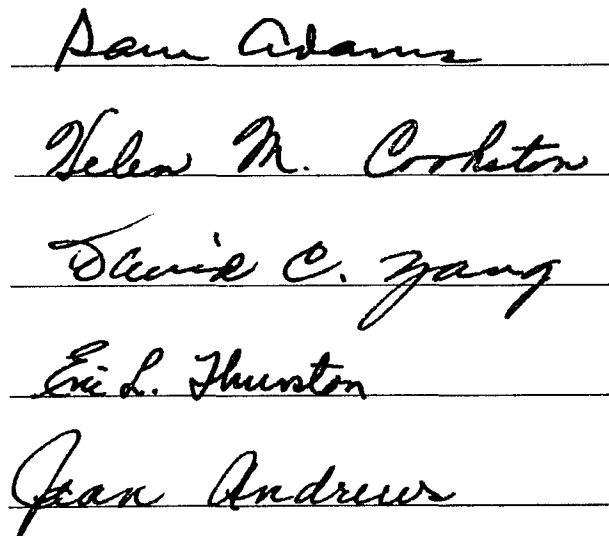 Sam Adams
Helen M. Cookston
David C. Yang
Eric L. Thurston
Jean Andrews